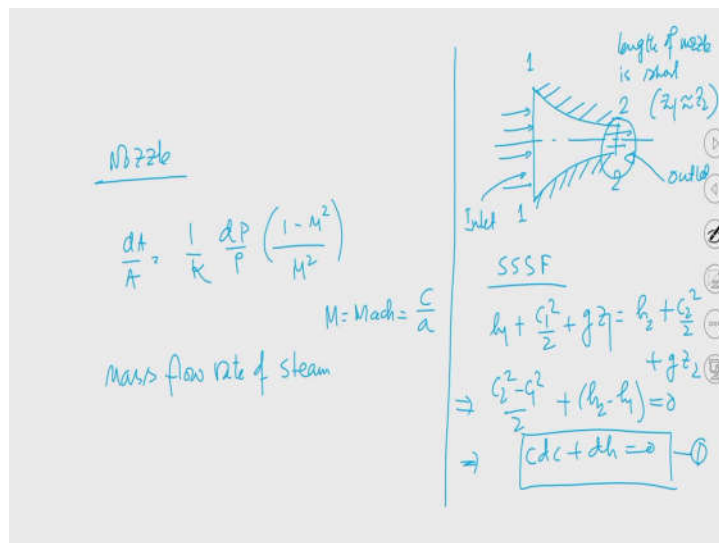 Nozzle
dA/A = 1/k dP/P (1-M²/M²)
M = Mach = C/a
Mass flow rate of steam
length of nozzle
is short
(z₁≈z₂)
1
2
2
outlet
Inlet
1
SSSF
h₁ + C₁²/2 + gz₁ = h₂ + C₂²/2
+ gz₂
⇒ C₂²-C₁²/2 + (h₂-h₁) = 0
⇒ CdC + dh = 0 —①